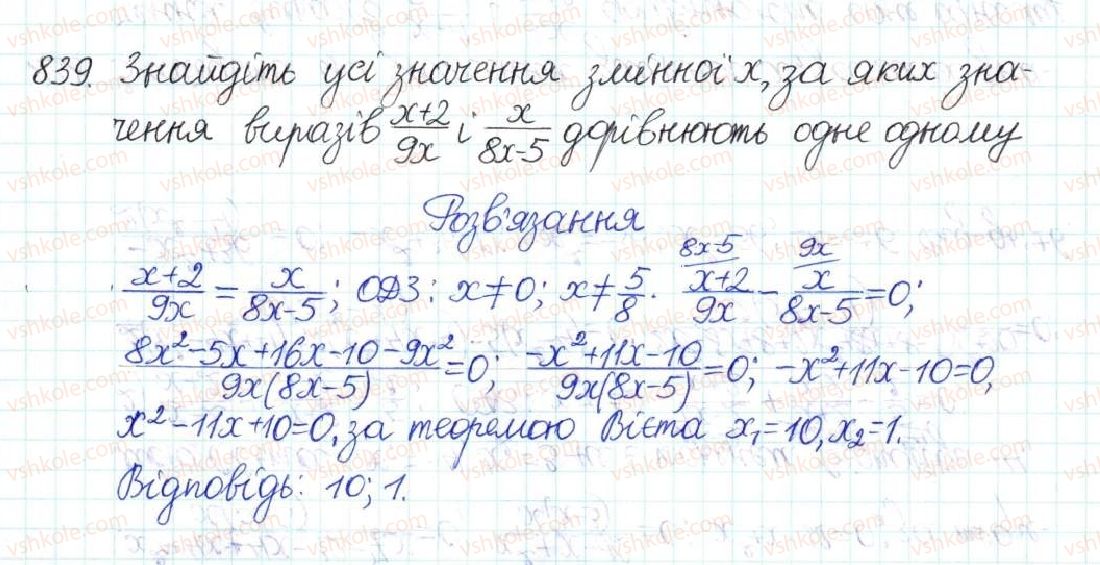 839. Знайдіть усі значення змінної x, за яких зна-
чення виразів (x+2)/(9x) і x/(8x-5) дорівнюють одне одному
Розв'язання
(x+2)/(9x) = x/(8x-5); ОДЗ: x≠0; x≠5/8. (8x-5/ (x+2)/(9x) - 9x/ x/(8x-5) = 0;
(8x²-5x+16x-10-9x²)/(9x(8x-5)) = 0; (-x²+11x-10)/(9x(8x-5)) = 0; -x²+11x-10=0,
x²-11x+10=0, за теоремою Вієта x₁=10, x₂=1.
Відповідь: 10; 1.
vshkole.com